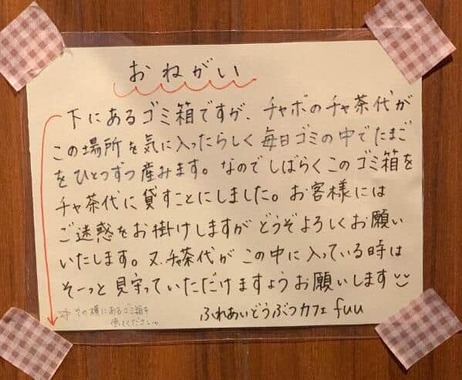 おねがい
下にあるゴミ箱ですが、チャボのチャ茶代が
この場所を気に入ったらしく毎日ゴミの中でたまご
をひとつずつ産みます。なのでしばらくこのゴミ箱を
チャ茶代に貸すことにしました。お客様には
ご迷惑をお掛けしますがどうぞよろしくお願い
いたします。又、チャ茶代がこの中に入っている時は
そーっと見守っていただけますようお願いします
ふれあいどうぶつカフェ fuu
その横にあるゴミ箱を
使ってください